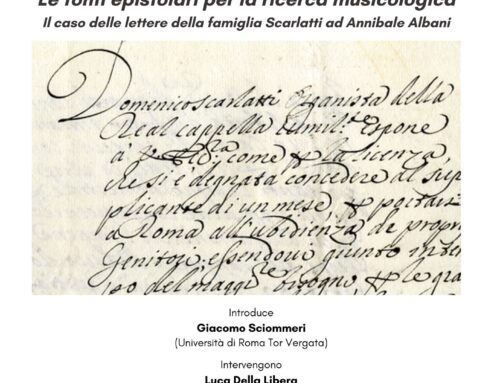 Le fonti epistolari per la ricerca musicologica
Il caso delle lettere della famiglia Scarlatti ad Annibale Albani
Domenico Scarlatti Organista della
Real cappella humil.e espone
à come la licenza,
che si è degnata concedere al sup
plicante di un mese, portarsi
a Roma all'ubidienza de propri
Genitori, essendovi giunto in tem
po del bisogno, le gra
Introduce
Giacomo Sciommeri
(Università di Roma Tor Vergata)
Intervengono
Luca Della Libera